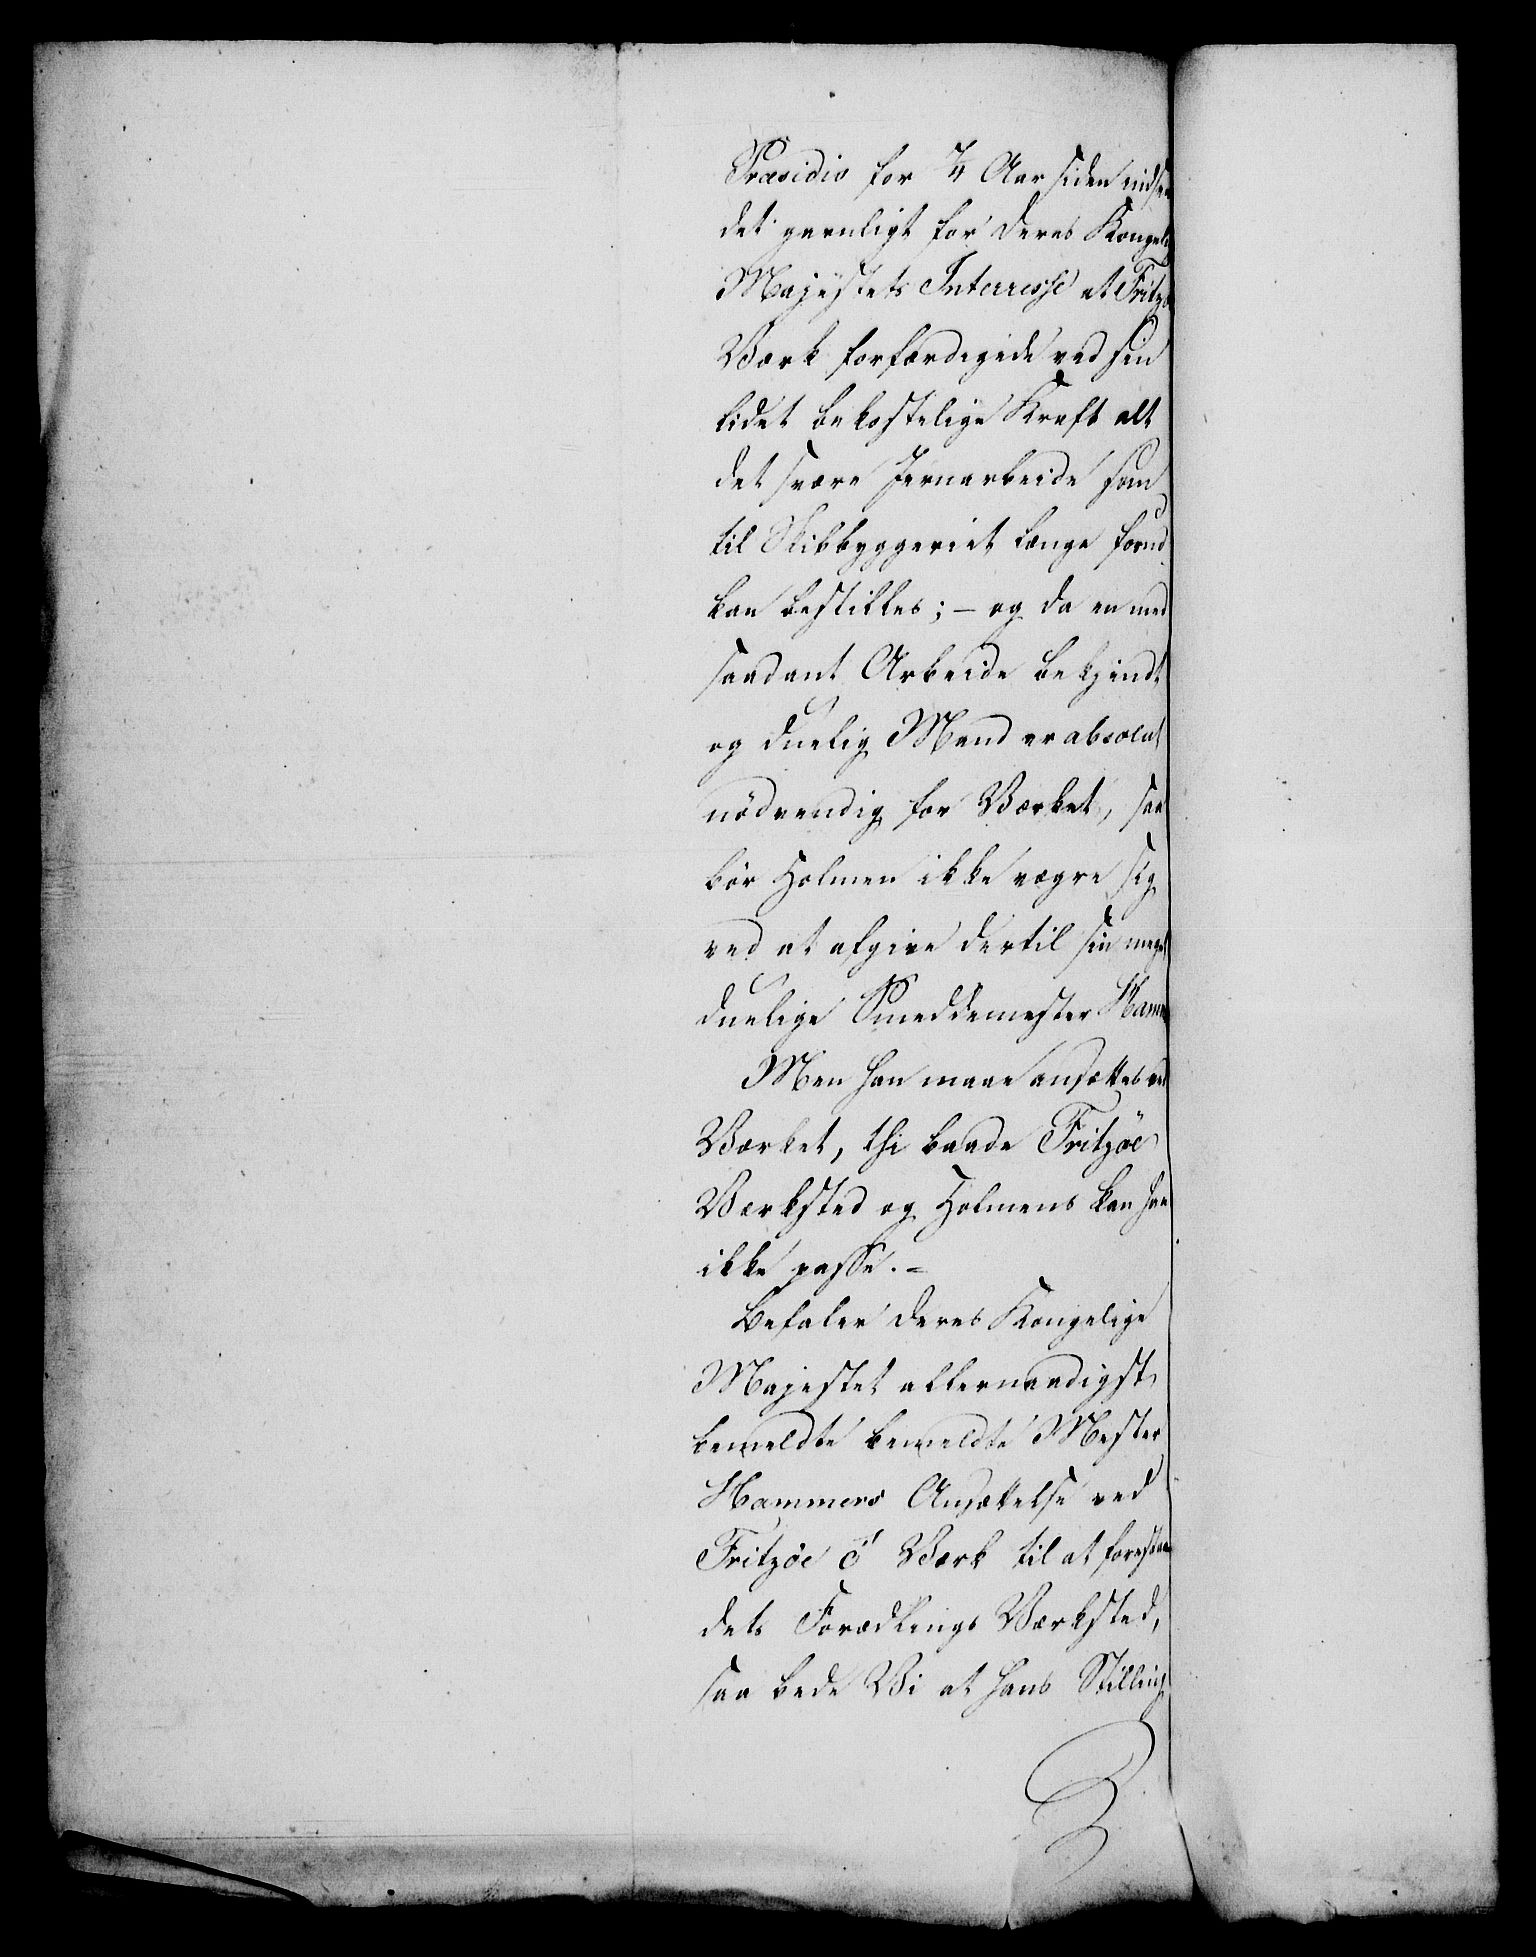 Præsidio for 7/4 Aar siden indsaae
det gavnligt for Deres Kongelig
Majestets Interresse at Fritzø
Værk forfærdigede ved sin
lidet bekostelige Kraft alt
det svære Jernarbeide som
til Skibbyggeriet længe forud
kan bestilles; – og da en med
saadant Arbeide bekjendt
og duelig Mand er absolut
nödvendig for Værket, saa
bör Holmen ikke vægre sig
ved at afgive dertil sin meget
duelige Smeddemester Hammer
Men han maae ansættes ved
Værket, thi baade Fritzöe
Værksted og Holmens kan han
ikke passe. –
Befaler Deres Kongelige
Majestet allernaadigst
bemeldte bemeldte Mester
Hammers Ansættelse ved
Fritzöe Værk til at forestaae
dets Forædlings Værksted,
saa bede Vi at hans Stilling